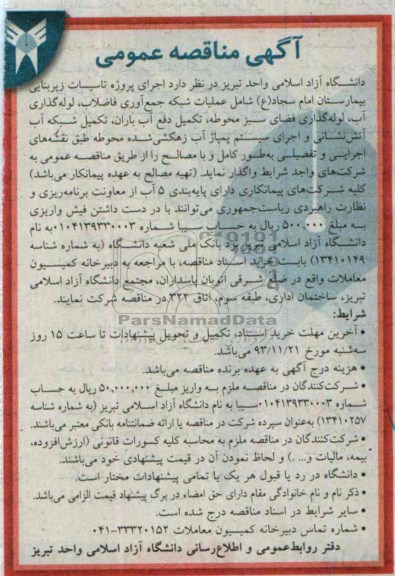 آگهی مناقصه عمومی
دانشگاه آزاد اسلامی واحد تبریز در نظر دارد اجرای پروژه تاسیسات زیربنایی
بیمارستان امام سجاد(ع) شامل عملیات شبکه جمع‌آوری فاضلاب، لوله‌گذاری
آب، لوله‌گذاری فضای سبز محوطه، تکمیل دفع آب باران، تکمیل شبکه آب
آتش‌نشانی و اجرای سیستم پمپاژ آب زهکشی‌شده محوطه طبق نقشه‌های
اجرایی و تفصیلی به‌طور کامل و با مصالح را از طریق مناقصه عمومی به
شرکت‌های واجد شرایط واگذار نماید. (تهیه مصالح به عهده پیمانکار می‌باشد)
کلیه شرکت‌های پیمانکاری دارای پایه‌بندی ۵ آب از معاونت برنامه‌ریزی و
نظارت راهبردی ریاست‌جمهوری می‌توانند با در دست داشتن فیش واریزی
به مبلغ ۵۰۰,۰۰۰ ریال به حساب سیبا شماره ۰۱۰۴۱۳۹۳۳۰۰۰۳ به نام
دانشگاه آزاد اسلامی تبریز نزد بانک ملی شعبه دانشگاه (به شماره شناسه
۱۳۴۱۰۱۴۹) بابت خرید اسناد مناقصه، با مراجعه به دبیرخانه کمیسیون
معاملات واقع در ضلع شرقی اتوبان پاسداران، مجتمع دانشگاه آزاد اسلامی
تبریز، ساختمان اداری، طبقه سوم، اتاق ۳۲۲ در مناقصه شرکت نمایند.
ParsNamadData
شرایط:
• آخرین مهلت خرید اسناد، تکمیل و تحویل پیشنهادات تا ساعت ۱۵ روز
سه‌شنبه مورخ ۹۳/۱۱/۲۱ می‌باشد.
• هزینه درج آگهی به عهده برنده مناقصه می‌باشد.
• شرکت‌کنندگان در مناقصه ملزم به واریز مبلغ ۵۰,۰۰۰,۰۰۰ ریال به حساب
شماره ۰۱۰۴۱۳۹۳۳۰۰۰۳ سیبا به نام دانشگاه آزاد اسلامی تبریز (به شماره شناسه
۱۳۴۱۰۲۵۷) به‌عنوان سپرده شرکت در مناقصه یا ارائه ضمانتنامه بانکی معتبر می‌باشند.
• شرکت‌کنندگان در مناقصه ملزم به محاسبه کلیه کسورات قانونی (ارزش‌افزوده،
بیمه، مالیات و... .) و لحاظ نمودن آن در قیمت پیشنهادی خود می‌باشند.
• دانشگاه در رد یا قبول هر یک یا تمامی پیشنهادات مختار است.
• ذکر نام و نام خانوادگی مقام دارای حق امضاء در برگ پیشنهاد قیمت الزامی می‌باشد.
• سایر شرایط در اسناد مناقصه درج شده است.
• شماره تماس دبیرخانه کمیسیون معاملات ۳۳۳۲۰۱۵۲-۰۴۱
دفتر روابط‌عمومی و اطلاع‌رسانی دانشگاه آزاد اسلامی واحد تبریز